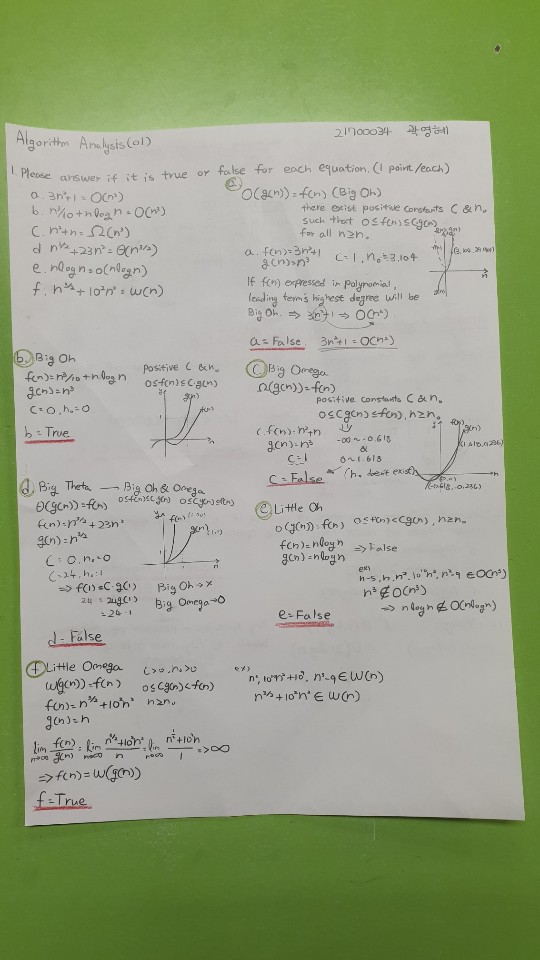 Algorithm Analysis(01)
21700034 곽영혜
1. Please answer if it is true or false for each equation. (1 point/each)
a. 3n²+1 = O(n³)
b. n³/10 + nlogn = O(n³)
c. n²+n = Ω(n³)
d. n^1/2 + 23n² = Θ(n^3/2)
e. nlogn = o(nlogn)
f. n^3/2 + 10²n² = ω(n)
ⓐ O(g(n)) = f(n) (Big Oh)
there exist positive constants C & n₀
such that 0≤f(n)≤Cg(n)
for all n≥n₀
a. f(n)=3n²+1
g(n)=n³
C=1, n₀=3.104
If f(n) expressed in polynomial,
leading term's highest degree will be
Big Oh. ⇒ 3n²+1 ⇒ O(n²)
a=False. 3n²+1=O(n²)
ⓑ Big Oh
f(n)=n³/10+nlogn
g(n)=n³
C=0, n₀=0
b=True
positive C & n₀
0≤f(n)≤C·g(n)
g(n)
f(n)
n
ⓒ Big Omega
Ω(g(n))=f(n)
positive constants C & n₀
0≤Cg(n)≤f(n), n≥n₀
c. f(n)=n²+n
g(n)=n³
C=1
-∞~-0.618
&
0~1.618
C=False
(n₀ don't exist)
f(n)
g(n)
(1.618, 4.236)
(0,0)
(-0.618, -0.236)
n
ⓓ Big Theta → Big Oh & Omega
Θ(g(n))=f(n) 0≤f(n)≤Cg(n) 0≤Cg(n)≤f(n)
f(n)=n^1/2+23n²
g(n)=n^3/2
C=0, n₀=0
C=24, n₀=1
⇒ f(1)=C·g(1)
24=24g(1)
=24·1
f(n)
g(n)
(1,1)
n
Big Oh→X
Big Omega→O
d=False
ⓔ Little Oh
o(g(n))=f(n) 0≤f(n)<Cg(n), n≥n₀
f(n)=nlogn
g(n)=nlogn
⇒False
ex)
n³ ∉ O(n³)
⇒ nlogn ∉ O(nlogn)
e=False
ⓕ Little Omega C>0, n₀>0
ω(g(n))=f(n) 0≤Cg(n)<f(n)
f(n)=n^3/2+10²n² n≥n₀
g(n)=n
ex)
n^3/2+10²n² ∈ ω(n)
lim n→∞ f(n)/g(n) = lim n→∞ (n^3/2+10²n²)/n = lim n→∞ (n^1/2+10²n)/1 ⇒∞
⇒f(n)=ω(g(n))
f=True